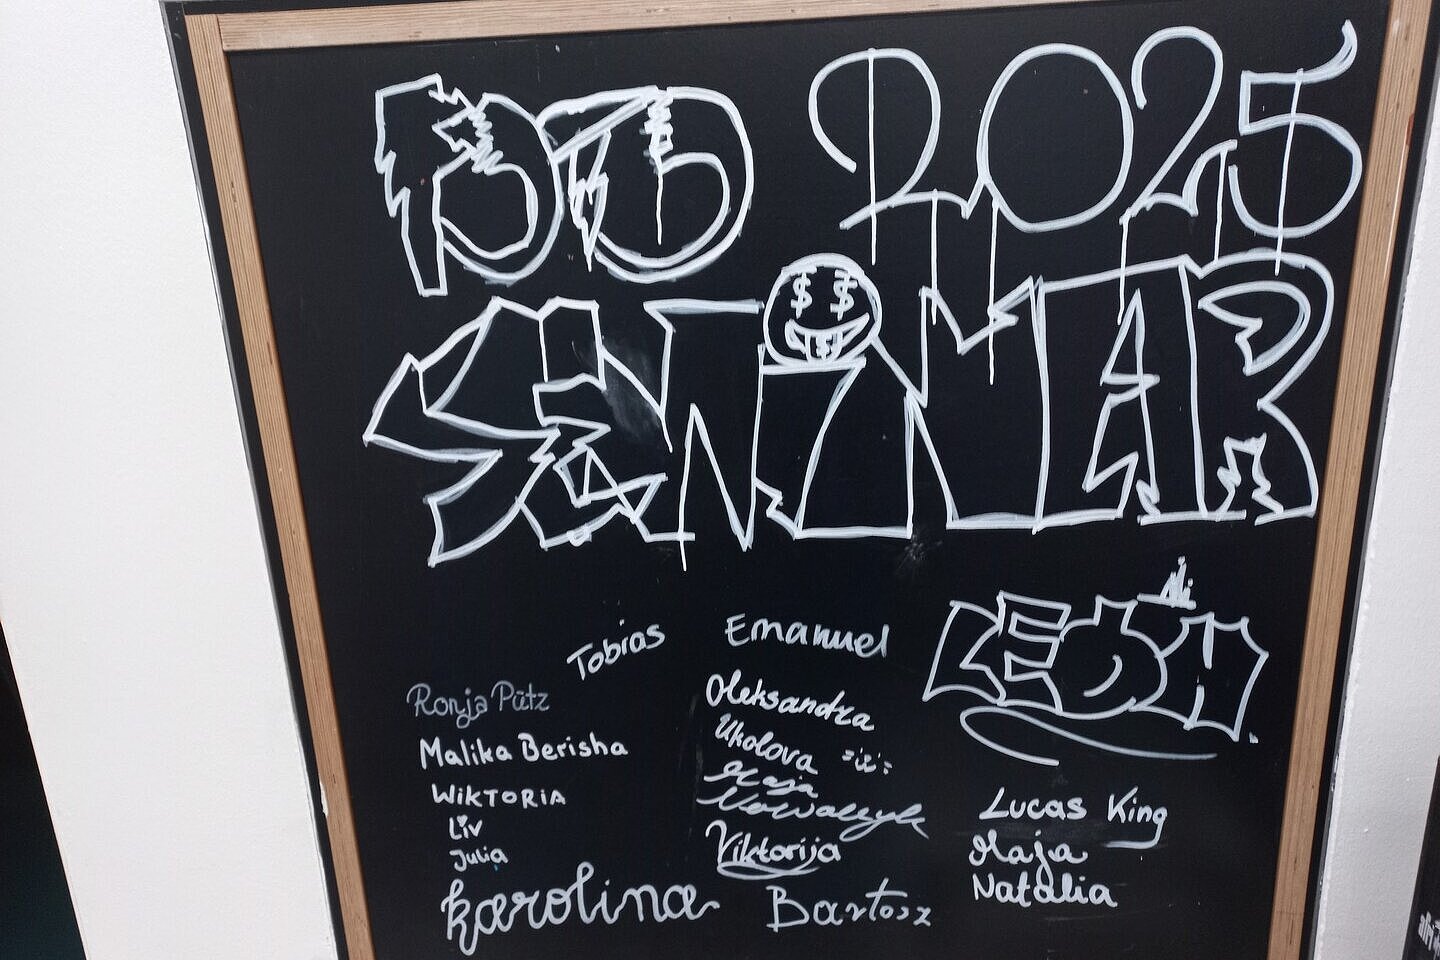 2025
SEMINAR
Ali
LEON
Tobias
Emanuel
Ronja Pütz
Malika Berisha
WIKTORIA
Liv
Julia
Karolina
Oleksandra
Ukolova
Maja
Viktorija
Bartosz
Lucas King
Maja
Natalia